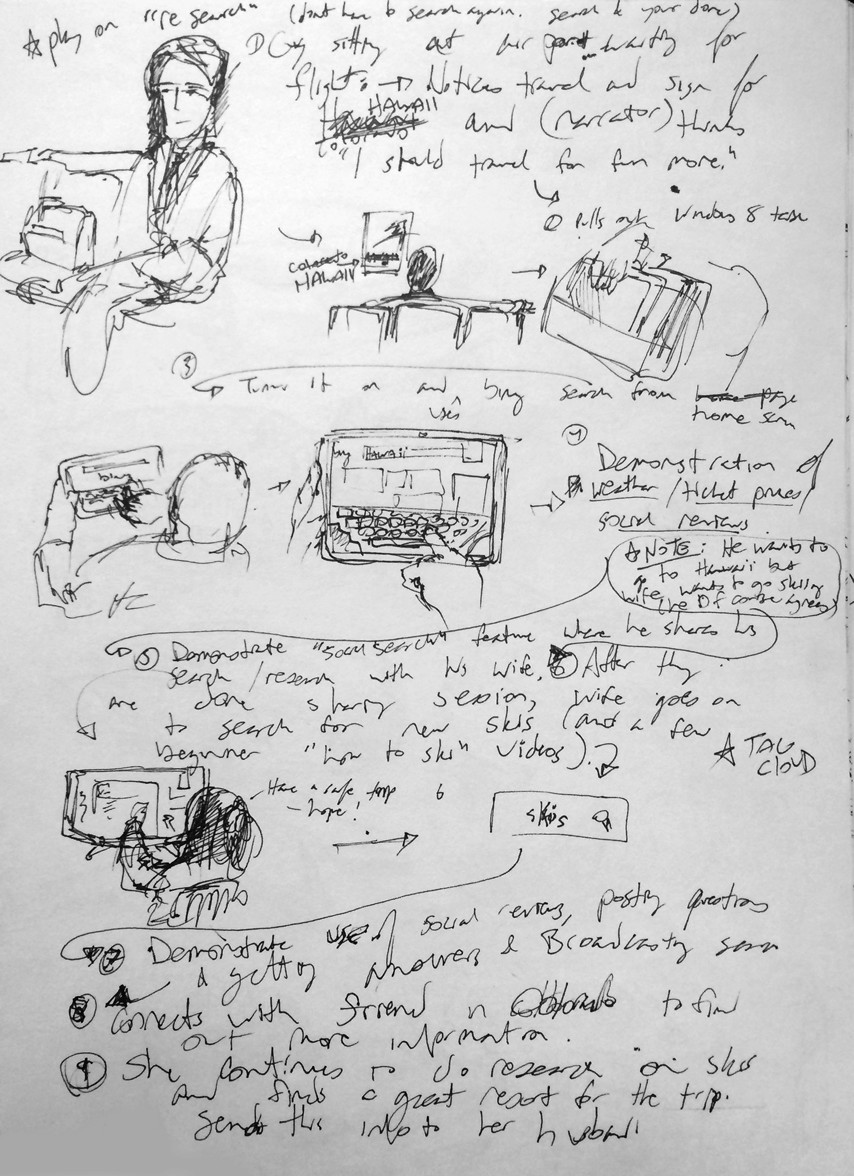 ☆ play on "re search" (dont have to search again. search & your done)
① Guy sitting at air port waiting for
flight: → Notices travel ad sign for
HAWAII and (narrator) thinks
"I should travel for fun more."
② Pulls out Windows 8
come to
HAWAII
③
Turns it on and uses bing search from
home
bing
bing HAWAII
④
Demonstration of
weather / ticket prices /
social reviews
☆ NOTE: He wants to
go to Hawaii but
wife wants to go skiing
(he of course agrees)
⑤ Demonstrate "social search" feature where he shares his
search / research with his wife, ⑥ After they
are done sharing session, wife goes on
to search for new skis (and a few
beginner "how to ski" videos).
☆ TAG
CLOUD
Have a safe trip
home!
6
skis
⑦ Demonstrate use of social reviews, posting questions
& getting answers & Broadcasting
⑧ Connects with friend in to find
out more information.
⑨ She continues to do research on skis
and finds a great resort for the trip.
Sends this info to her husband.